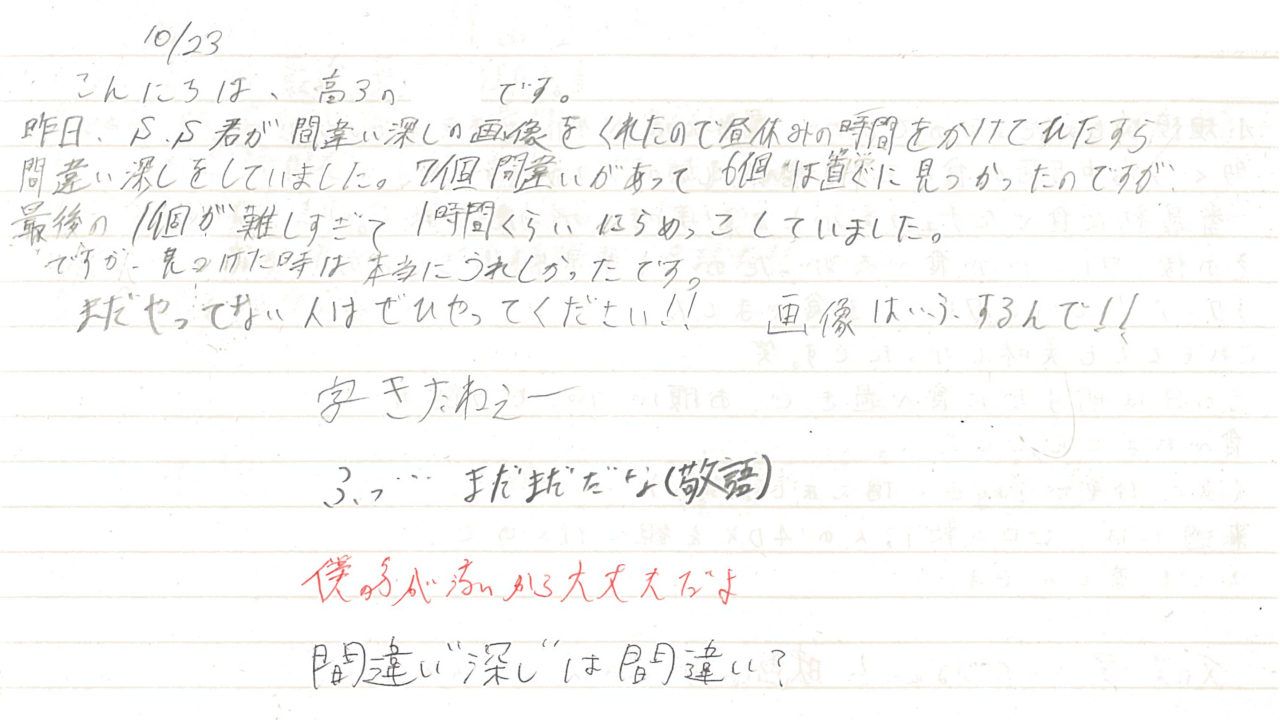 10/23
こんにちは、高3の です。
昨日、S.S君が間違い深しの画像をくれたので昼休みの時間をかけてひたすら
間違い深しをしていました。7個間違いがあって6個は直ぐに見つかったのですが、
最後の1個が難しすぎて1時間くらいにらめっこしていました。
ですが、見つけた時は本当にうれしかったです。
まだやってない人はぜひやってください!! 画像はいふするんで!!
字きたねぇー
ふっ… まだまだだな(敬語)
僕の字が汚いから大丈夫だよ
間違い"深し"は間違い?